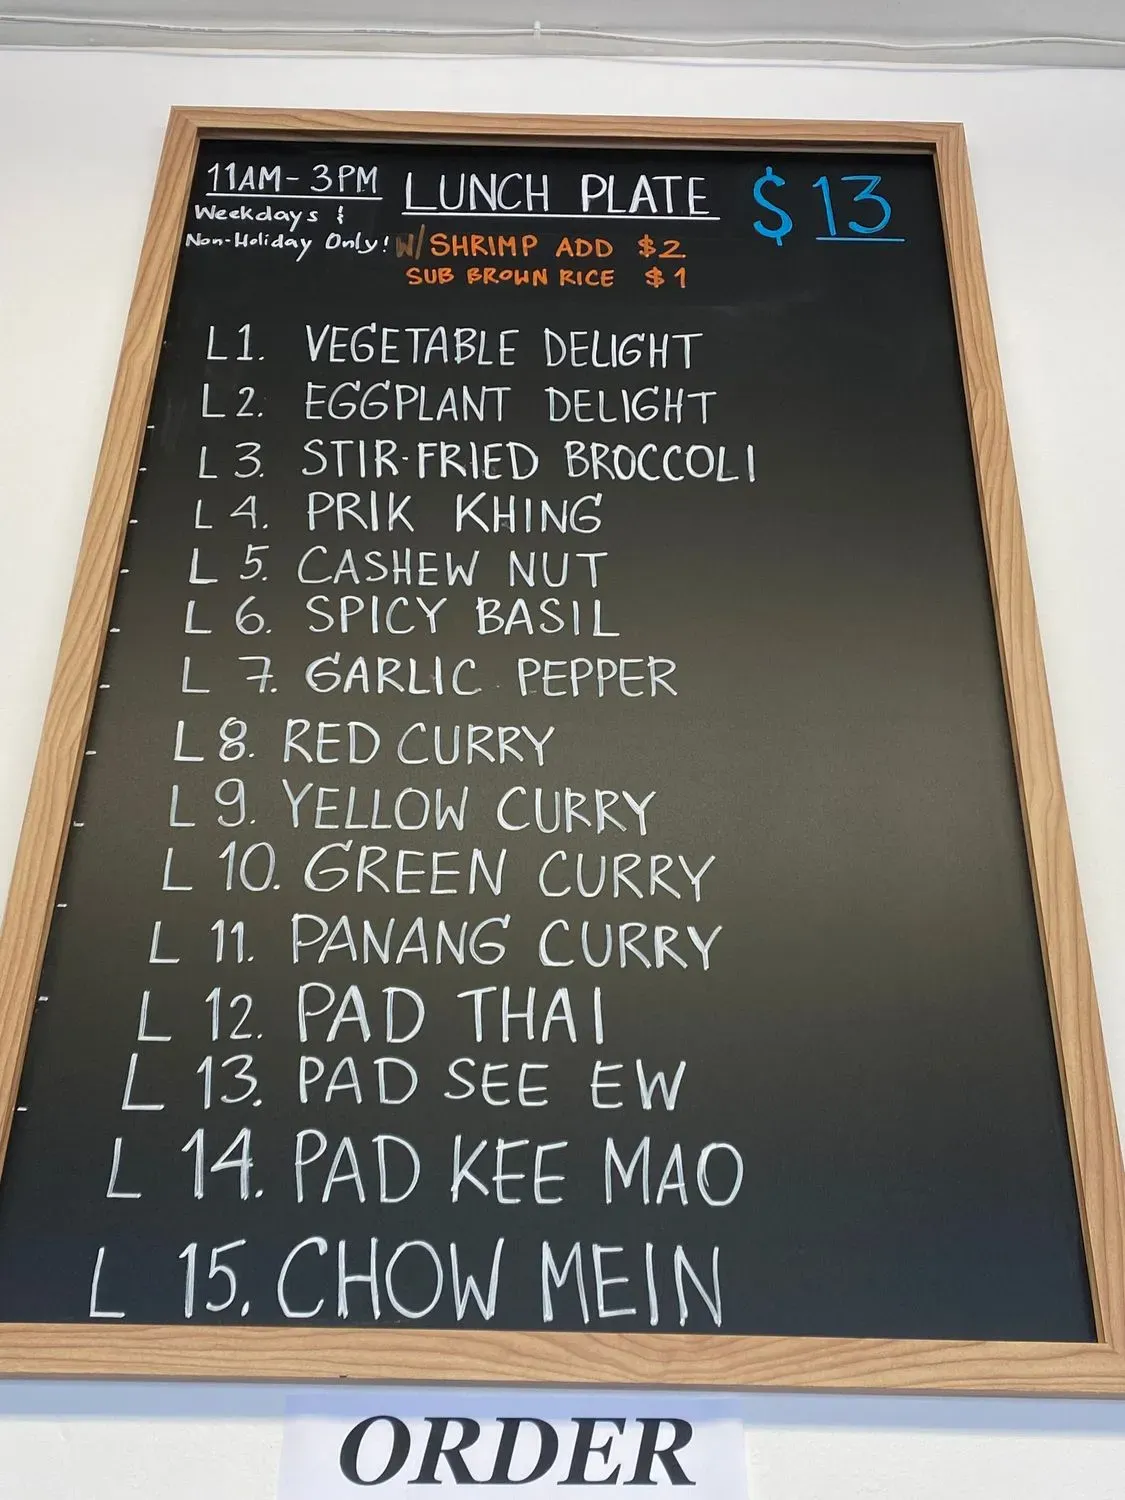 11AM - 3PM LUNCH PLATE $13
Weekdays &
Non-Holiday Only! W/ SHRIMP ADD $2
SUB BROWN RICE $1
L1. VEGETABLE DELIGHT
L2. EGGPLANT DELIGHT
L3. STIR-FRIED BROCCOLI
L4. PRIK KHING
L5. CASHEW NUT
L6. SPICY BASIL
L7. GARLIC PEPPER
L8. RED CURRY
L9. YELLOW CURRY
L10. GREEN CURRY
L11. PANANG CURRY
L12. PAD THAI
L13. PAD SEE EW
L14. PAD KEE MAO
L15. CHOW MEIN
ORDER